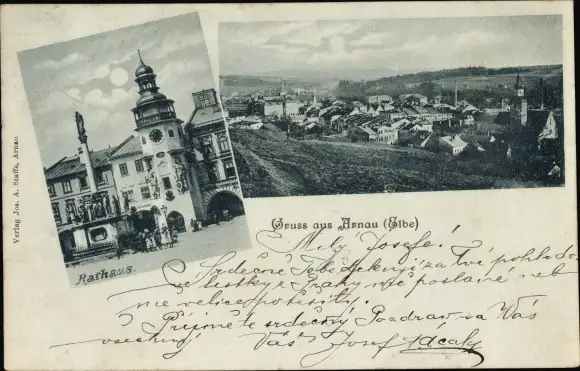 Verlag Jos. A. Staffa, Arnau
Rathaus.
Gruss aus Arnau (Elbe)
Milý Josefe!
Srdečně Tobě děkuji za tvé pohled-
lístky z Prahy mě poslané neb
mne velice potěšily.
Přijměte srdečný Pozdrav na Vás
všechny Váš Josef